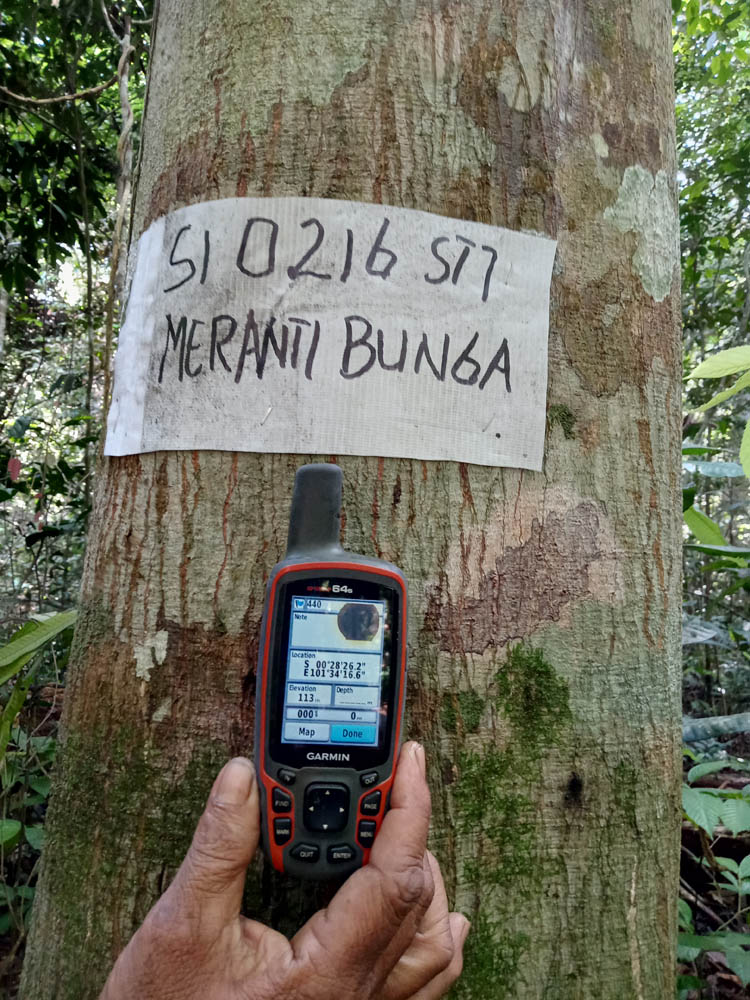 SI 0216 ST7
MERANTI BUNGA
64s
440
Note
Location
S 00°28'26.2"
E101°34'16.6"
Elevation
Depth
113m
000°
0m
Map
Done
GARMIN
IN
OUT
FIND
PAGE
MARK
MENU
QUIT
ENTER